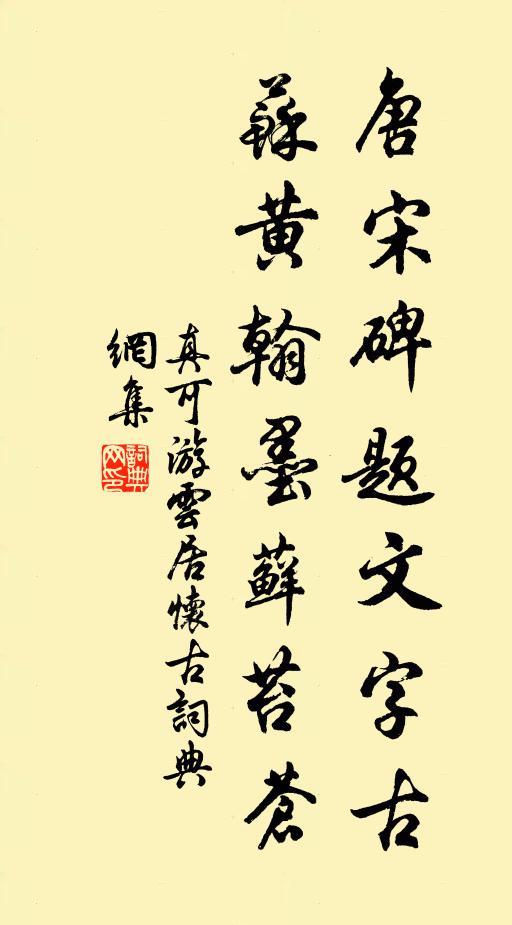 唐宋碑题文字古
蘇黄翰墨蘚苔蒼
真可游雲居懷古詞典
網集
詞典
网印